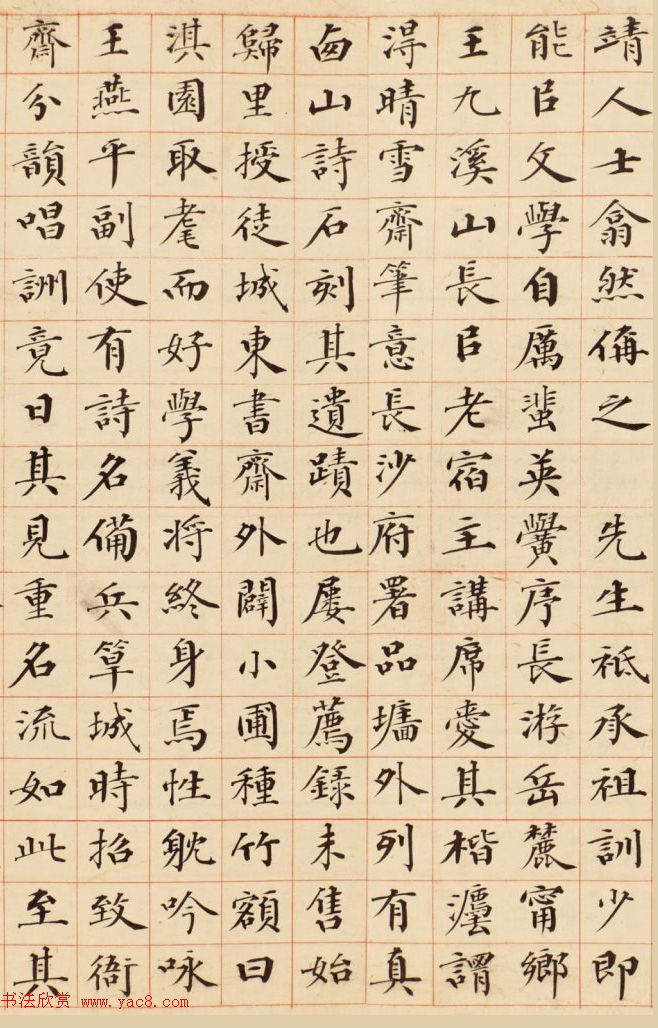 靖人士翕然偁之　先生祗承祖訓少即
能㠯文學自厲蜚英黌序長游岳麓甯鄉
王九溪山長㠯老宿主講席愛其楷灋謂
淂晴雪齋筆意長沙府署品墉外列有真
西山詩石刻其遺蹟也屢登薦錄未售始
歸里授徒城東書齋外闢小圃種竹額曰
淇園取耄而好學義將終身焉性躭吟咏
王燕平副使有詩名備兵筸城時招致衙
齋分韻唱詶竟日其見重名流如此至其
书法欣赏 www.yac8.com